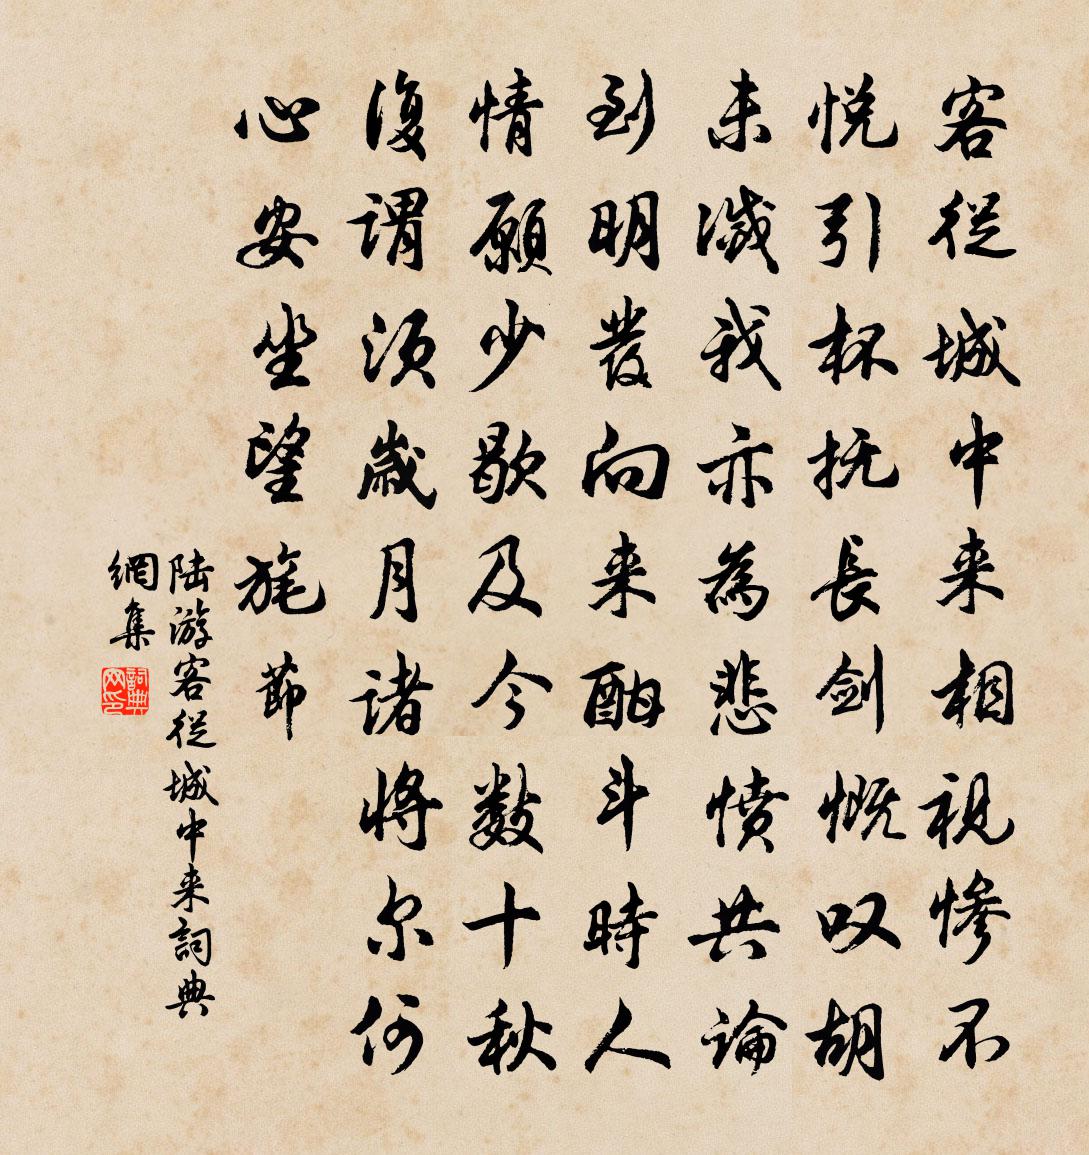 客從城中来相視慘不
悦引杯抚長劍慨叹胡
未滅我亦為悲憤共論
到明發向来酣斗時人
情願少歇及今數十秋
復謂須歲月諸將尔何
心安坐望旄節
陆游客從城中来詞典
網集
詞典
网印